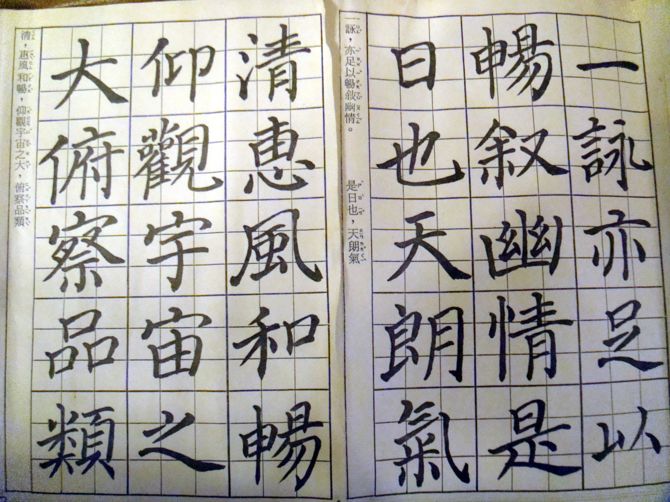 一詠亦足以
暢叙幽情是
日也天朗氣
一詠，亦足以暢敘幽情。　是日也，天朗氣
清恵風和暢
仰觀宇宙之
大俯察品類
清，惠風和暢，仰觀宇宙之大，俯察品類